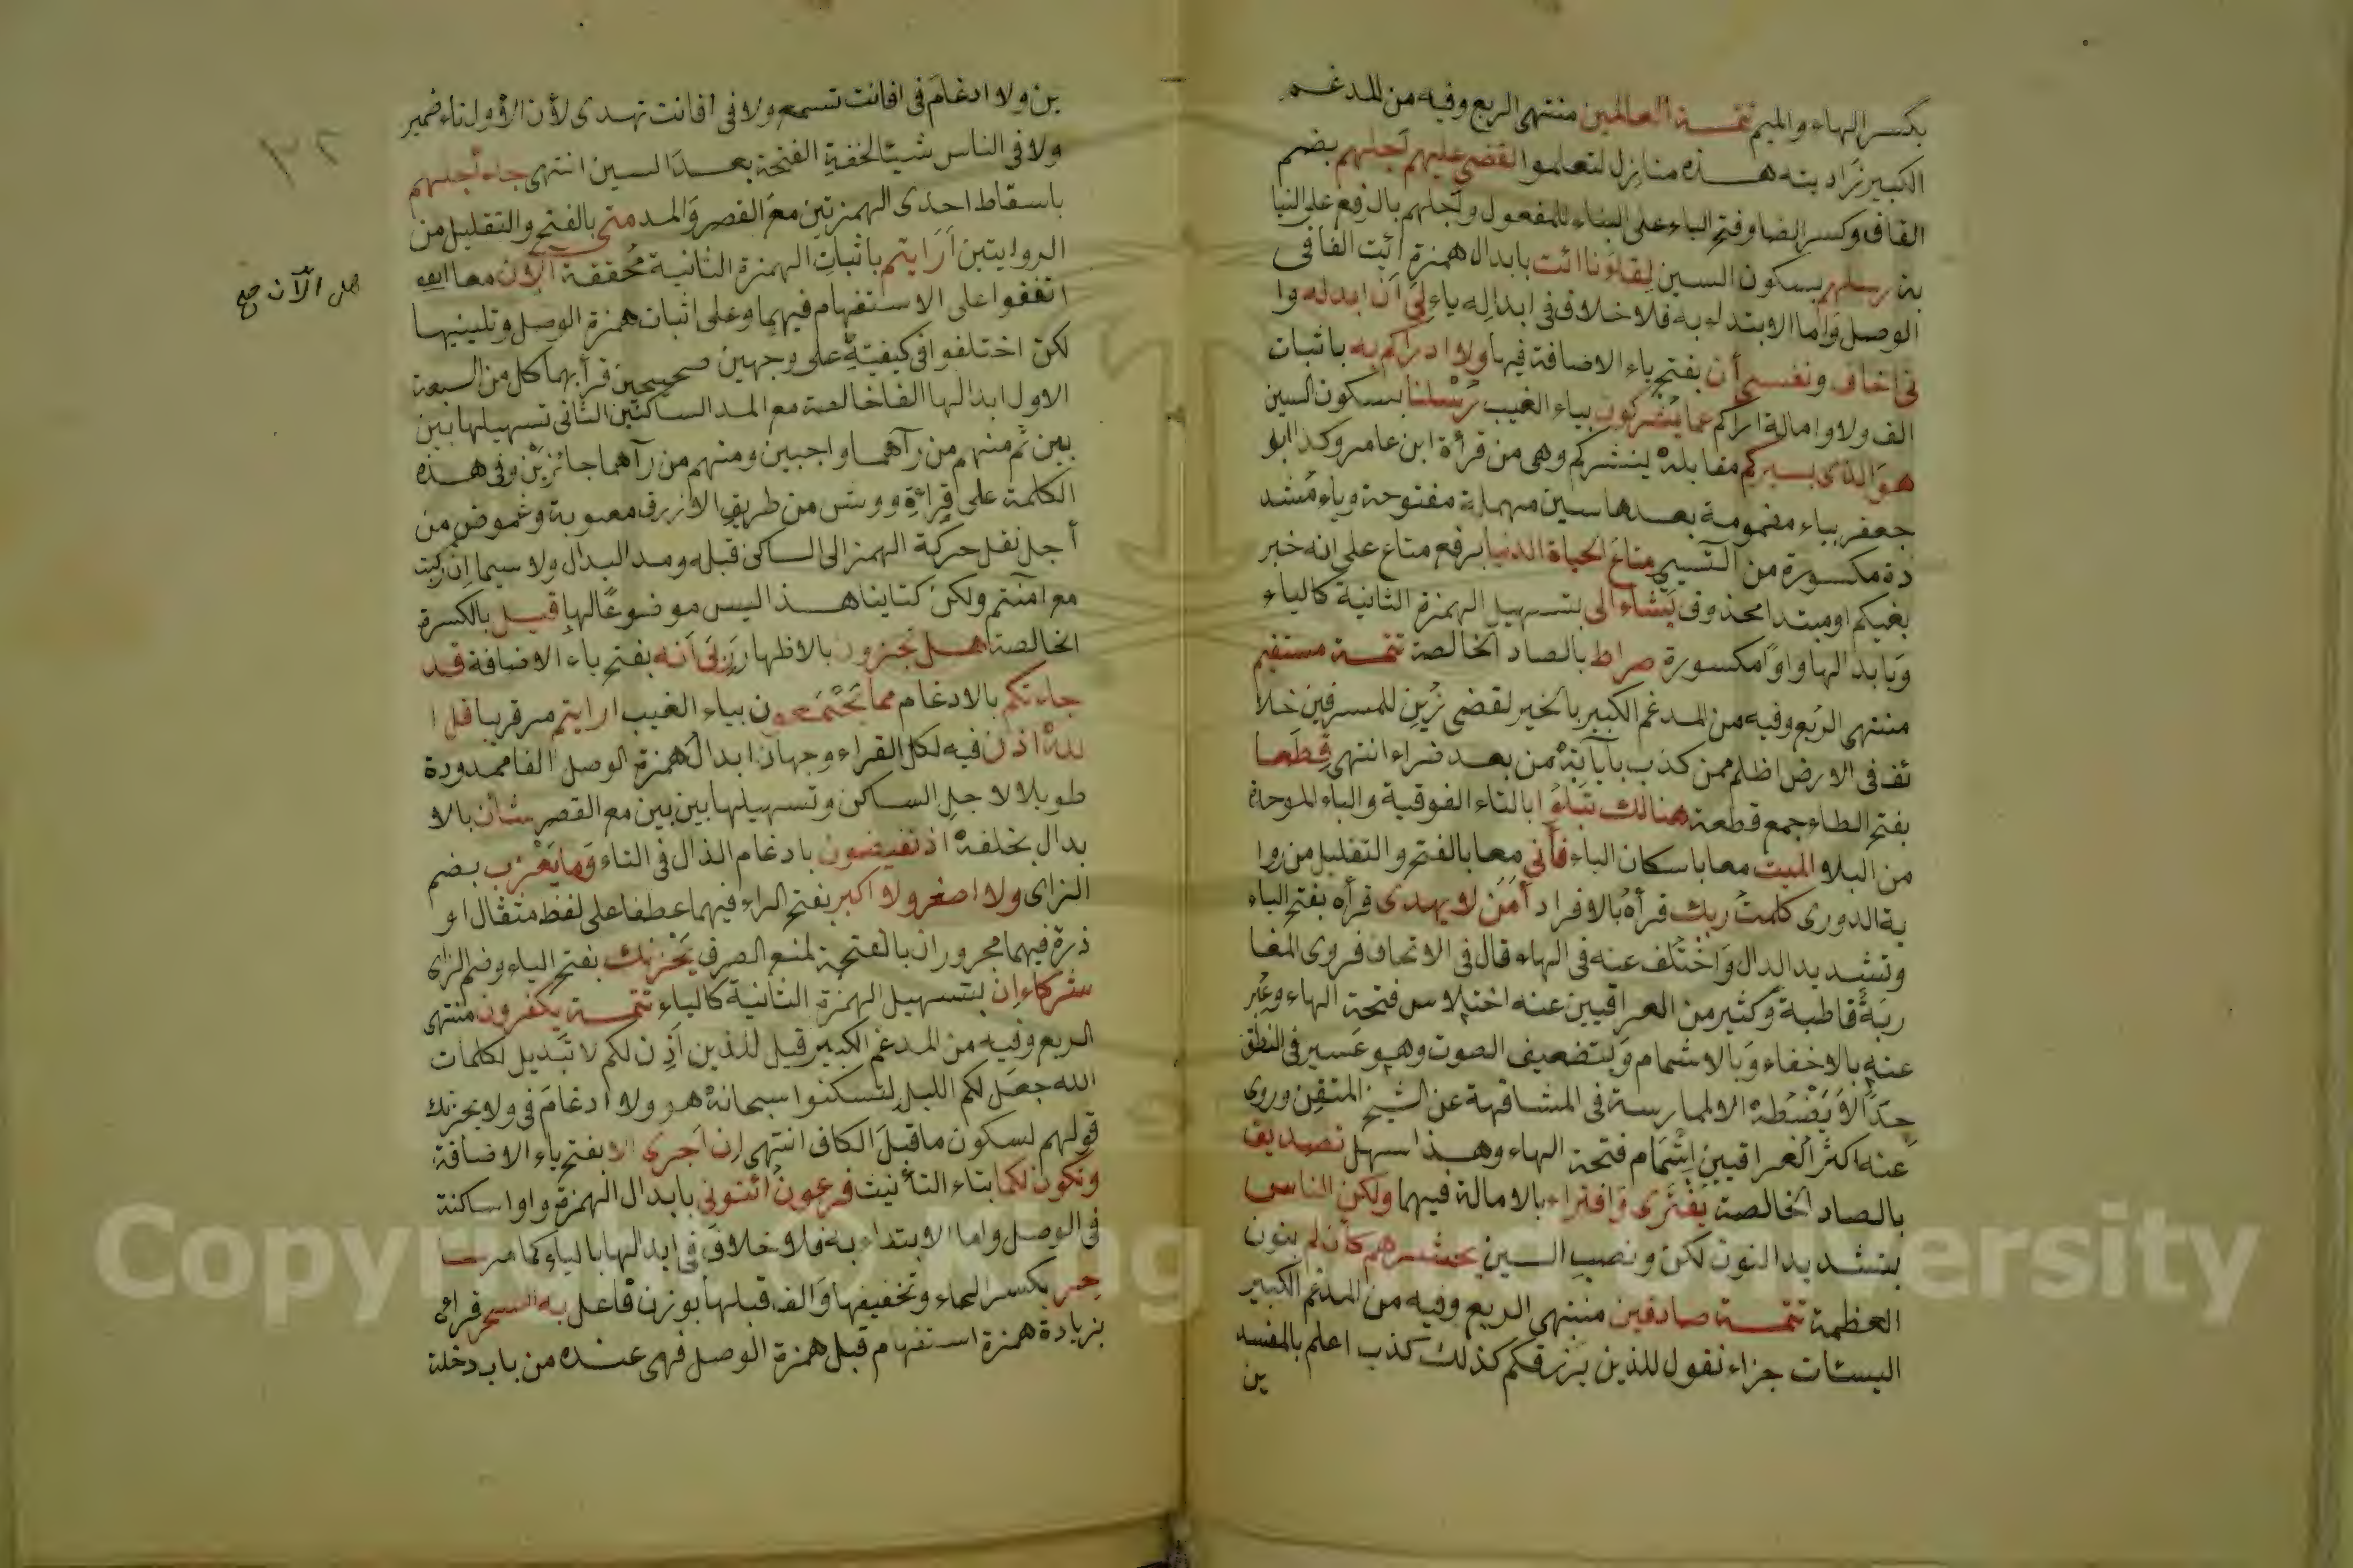 بكسر الهاء والميم تتمـة العالمين منتهى الربع وفيه من المدغم
الكبير زادته هـذه منازل لتعلموا لقضى عليهم أجلهم بضم
القاف وكسر الضاد وفتح الياء على البناء للمفعول وأجلهم بالرفع على النيا
بة رسلهم بسكون السين لقاءنا ائت بابدال همزة ائت الفا فى
الوصل وأما الابتداء به فلا خلاف فى ابداله ياء لى أن ابدله وا
نى اخاف ونفسى أن بفتح ياء الاضافة فيها ولا ادراكم به باثبات
الف ولا وامالة ادراكم عما يشركون بياء الغيب رسلنا بسكون السين
هو الذى يسيركم مقابلة ينشركم وهى من قرأة ابن عامر وكذا ابو
جعفر بياء مضمومة بعدها سين مهملة مفتوحة وياء مشد
دة مكسورة من التسيير متاع الحياة الدنيا برفع متاع على انه خبر
بغيكم او مبتدا محذوف يشاء الى بتسهيل الهمزة الثانية كالياء
وبابدالها واوا مكسورة صراط بالصاد الخالصة تتمـة مستقيم
منتهى الربع وفيه من المدغم الكبير بالخير لقضى زين للمسرفين خلا
ئف فى الارض اظلم ممن كذب بآياته من بعد ضراء انتهى قطعا
بفتح الطاء جمع قطعة هنالك تبلوا بالتاء الفوقية والباء الموحدة
من البلاء الميت معا باسكان الياء فأنى معا بالفتح والتقليل من روا
ية الدورى كلمت ربك قرأه بالافراد أمن لا يهدى قرأه بفتح الياء
وتشديد الدال واختلف عنه فى الهاء قال فى الاتحاف فروى المغا
ربة قاطبة وكثير من العراقيين عنه اختلاس فتحة الهاء وعبر
عنه بالاخفاء وبالاشمام وبتضعيف الصوت وهو عسير فى النطق
جدا لا يضبطه الا الممارسة فى المشافهة عن الشيخ المتقن وروى
عنه اكثر العراقيين إتمام فتحة الهاء وهـذا اسهل تصديق
بالصاد الخالصة يفترى وافتراء بالامالة فيهما ولكن الناس
بتشديد النون لكن ونصب السين يحشرهم كأن لم بنون
العظمة تتمـة صادقين منتهى الربع وفيه من المدغم الكبير
السيئات جزاء نقول للذين يرزقكم كذلك كذب اعلم بالمفسد
ين
ين ولا ادغام فى افانت تسمع ولا فى افانت تهدى لأن الأول تاء ضمير
ولا فى الناس شيئا لخفة الفتحة بعد السين انتهى جاء أجلهم
باسقاط احدى الهمزتين مع القصر والمد متى بالفتح والتقليل من
الروايتين أرايتم باثبات الهمزة الثانية محققة آلان معا
هل الآن صح
اتفقوا على الاستفهام فيهما وعلى اثبات همزة الوصل وتليينها
لكن اختلفوا فى كيفيته على وجهين صحيحين قرأ بهما كل من السبعة
الاول ابدالها الفا خالصة مع المد الساكنين الثانى تسهيلها بين
بين ثم منهم من رآهما واجبين ومنهم من رآهما جائزين وفى هـذه
الكلمة على قراءة وورش من طريق الازرق صعوبة وغموض من
أجل نقل حركة الهمز الى الساكن قبله ومد البدال ولا سيما ان ركبت
مع آمنتم ولكن كتابنا هـذا ليس موضوعا لها قيل بالكسرة
الخالصة هـل تجزون بالاظهار ربى أنه بفتح ياء الاضافة قد
جاءتكم بالادغام مما يجمعون بياء الغيب ارايتم مر قريبا قل ا
لله اذن فيه لكل القراء وجهان ابدال همزة الوصل الفا ممدودة
طويلا لاجل الساكن وتسهيلها بين بين مع القصر شأن بالا
بدال بخلفه اذ تفيضون بادغام الذال فى التاء وما يعزب بضم
الزاى ولا اصغر ولا اكبر بفتح الراء فيهما عطفا على لفظ مثقال او
ذرة فيهما مجروران بالفتحة لمنع الصرف يحزنك بفتح الياء وضم الزاى
شركاء ان بتسهيل الهمزة الثانية كالياء تتمـة يكفرون منتهى
الربع وفيه من المدغم الكبير قيل للذين أذن لكم لا تبديل لكلمات
الله جعل لكم الليل لتسكنوا سبحانه هو ولا ادغام فى ولا يحزنك
قولهم لسكون ما قبل الكاف انتهى إن أجرى الا بفتح ياء الاضافة
وتكون لكما بتاء التأنيث فرعون ائتونى بابدال الهمزة واوا ساكنة
فى الوصل واما الابتداء به فلا خلاف فى ابدالها بالياء كما مر سا
حر بكسر الحاء وتخفيفها والف قبلها بوزن فاعل به السحر قراه
بزيادة همزة استفهام قبل همزة الوصل فهى عنده من باب دخلة
Copyright © King Saud University